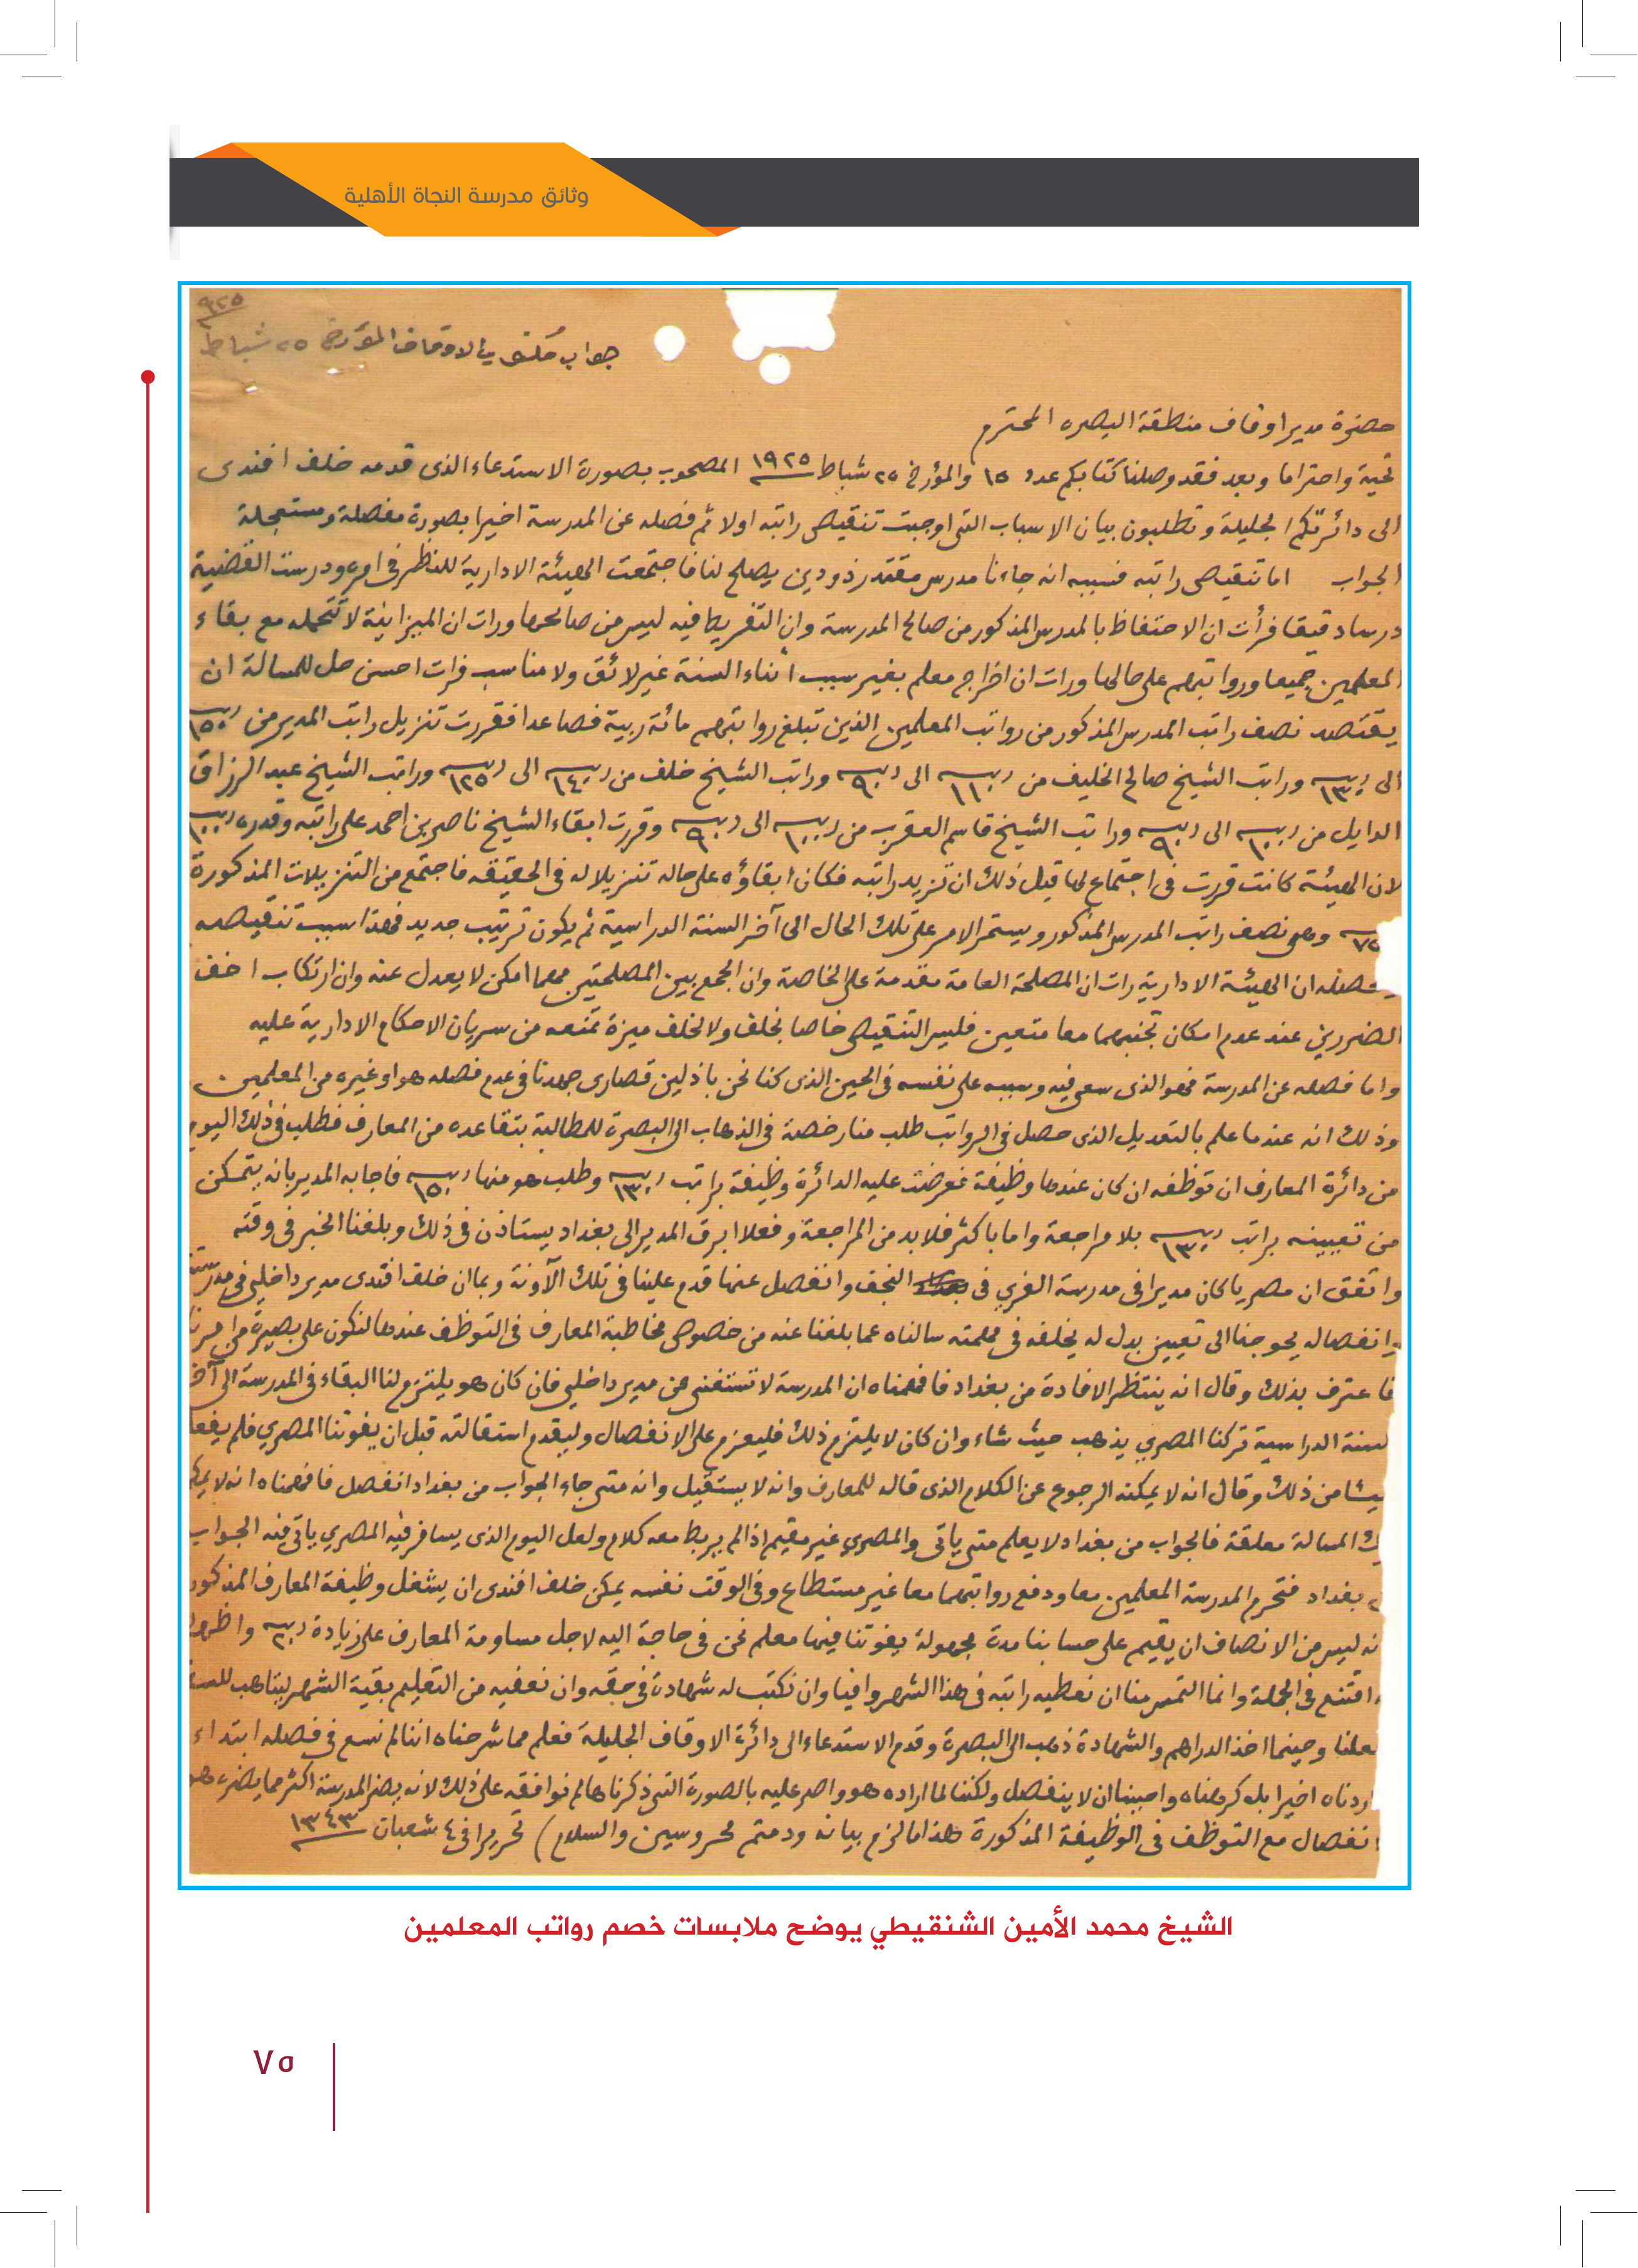 وثائق مدرسة النجاة الأهلية
٩٢٥
جواب مكتوب الاوقاف المؤرخ ٢٥ شباط
حضرة مدير اوقاف منطقة البصره المحترم
تحية واحتراما وبعد فقد وصلنا كتابكم عدد ١٥ والمؤرخ ٢٥ شباط ١٩٢٥ المصحوب بصورة الاستدعاء الذى قدمه خلف افندى
الى دائرتكم الجليلة وتطلبون بيان الاسباب التى اوجبت تنقيص راتبه اولا ثم فصله عن المدرسة اخيرا بصورة مفصلة ومستعجلة
الجواب اما تنقيص راتبه فسببه انه جاءنا مدرس مقتدر ذو دين يصلح لنا فاجتمعت الهيئة الادارية للنظر فى امره ودرست القضية
درسا دقيقا فرأت ان الاحتفاظ بالمدرس المذكور من صالح المدرسة وان التفريط فيه ليس من صالحها ورات ان الميزانية لا تتحمله مع بقاء
المعلمين جميعا ورواتبهم على حالها ورات ان اخراج معلم بغير سبب اثناء السنة غير لائق ولا مناسب فرات احسن حل للمسالة ان
يقتصد نصف راتب المدرس المذكور من رواتب المعلمين الذين تبلغ رواتبهم مائة ربية فصاعدا فقررت تنزيل راتب المدير من ربية ١٥٠
الى ربية ١٣٠ وراتب الشيخ صالح الخليف من ربية ١١٠ الى ربية ٩٠ وراتب الشيخ خلف من ربية ١٤٠ الى ربية ١٢٥ وراتب الشيخ عبد الرزاق
الدايل من ربية ١٠٠ الى ربية ٩٠ وراتب الشيخ قاسم العقرب من ربية ١٠٠ الى ربية ٩٠ وقررت ابقاء الشيخ ناصر بن احمد على راتبه وقدره ربية ١٠٠
لان الهيئة كانت قررت فى اجتماع لها قبل ذلك ان تزيد راتبه فكان ابقاؤه على حاله تنزيلا له فى الحقيقه فاجتمع من التنزيلات المذكورة
٧٥ وهى نصف راتب المدرس المذكور ويستمر الامر على تلك الحال الى آخر السنة الدراسية ثم يكون ترتيب جديد فهذا سبب تنقيصه
ان الهيئة الادارية رات ان المصلحة العامة مقدمة على الخاصة وان الجمع بين المصلحتين مهما امكن لا يعدل عنه وان ارتكاب اخف
الضررين عند عدم امكان تجنبهما معا متعين فليس التنقيص خاصا بخلف ولا لخلف ميزة تمنعه من سريان الاحكام الادارية عليه
واما فصله عن المدرسة فهو الذى سعى فيه وسببه على نفسه فى الحين الذى كنا نحن باذلين قصارى جهدنا فى عدم فصله هو او غيره من المعلمين
وذلك انه عندما علم بالتعديل الذى حصل فى الرواتب طلب منا رخصة فى الذهاب الى البصرة للمطالبة بتقاعده من المعارف فطلب فى ذلك اليوم
من دائرة المعارف ان توظفه ان كان عندها وظيفة فعرضت عليه الدائرة وظيفة براتب ربية ١٣٠ وطلب هو منها ربية ١٥٠ فاجابه المدير بانه يتمكن
من تعيينه براتب ربية ١٣٠ بلا مراجعة واما باكثر فلا بد من المراجعة وفعلا ابرق المدير الى بغداد يستاذن فى ذلك وبلغنا الخبر فى وقته
واتفق ان مصريا كان مديرا فى مدرسة الغري فى النجف وانفصل عنها قدم علينا فى تلك الآونة وبما ان خلف افندى مدير داخلي فى مدرستنا
وانفصاله يحوجنا الى تعيين بدل له يخلفه فى مهمته سالناه عما بلغنا عنه من خصوص مخاطبة المعارف فى التوظف عندها لنكون على بصيرة من امرنا
فاعترف بذلك وقال انه ينتظر الافادة من بغداد فافهمناه ان المدرسة لا تستغنى عن مدير داخلي فان كان هو يلتزم لنا البقاء فى المدرسة الى آخر
السنة الدراسية تركنا المصري يذهب حيث شاء وان كان لا يلتزم ذلك فليعزم على الانفصال وليقدم استقالته قبل ان يفوتنا المصري فلم يفعل
شيئا من ذلك وقال انه لا يمكنه الرجوع عن الكلام الذى قاله للمعارف وانه لا يستقيل وانه متى جاء الجواب من بغداد انفصل فافهمناه انه لا
المسالة معلقة فالجواب من بغداد لا يعلم متى ياتى والمصري غير مقيم اذا لم يربط معه كلام ولعل اليوم الذى يسافر فيه المصري ياتى فيه الجواب
بغداد فتحرم المدرسة المعلمين معا ودفع رواتبهما معا غير مستطاع وفى الوقت نفسه يمكن خلف افندى ان يشغل وظيفة المعارف المذكور
انه ليس من الانصاف ان يقيم على حسابنا مدة مجهولة يفوتنا فيها معلم نحن فى حاجة اليه لاجل مساومة المعارف على زيادة ربية ٢٠
اقتنع فى الجملة وانما التمس منا ان نعطيه راتبه فى هذا الشهر وافيا وان نكتب له شهادة فى حقه وان نعفيه من التعليم بقية الشهر ليتاهب للسفر
وحينما اخذ الدراهم والشهادة ذهب الى البصرة وقدم الاستدعاء الى دائرة الاوقاف الجليلة فعلم مما شرحناه اننا لم نسع فى فصله ابتداء
اردناه اخيرا بل كرهناه واحببنا ان لا ينفصل ولكننا لما اراده هو واصر عليه بالصورة التى ذكرناها لم نوافقه على ذلك لانه يضر المدرسة اكثر مما يضره هو
انفصال مع التوظف فى الوظيفة المذكورة هذا ما لزم بيانه ودمتم محروسين والسلام) تحريرا فى ٤ شعبان ١٣٤٣
الشيخ محمد الأمين الشنقيطي يوضح ملابسات خصم رواتب المعلمين
٧٥